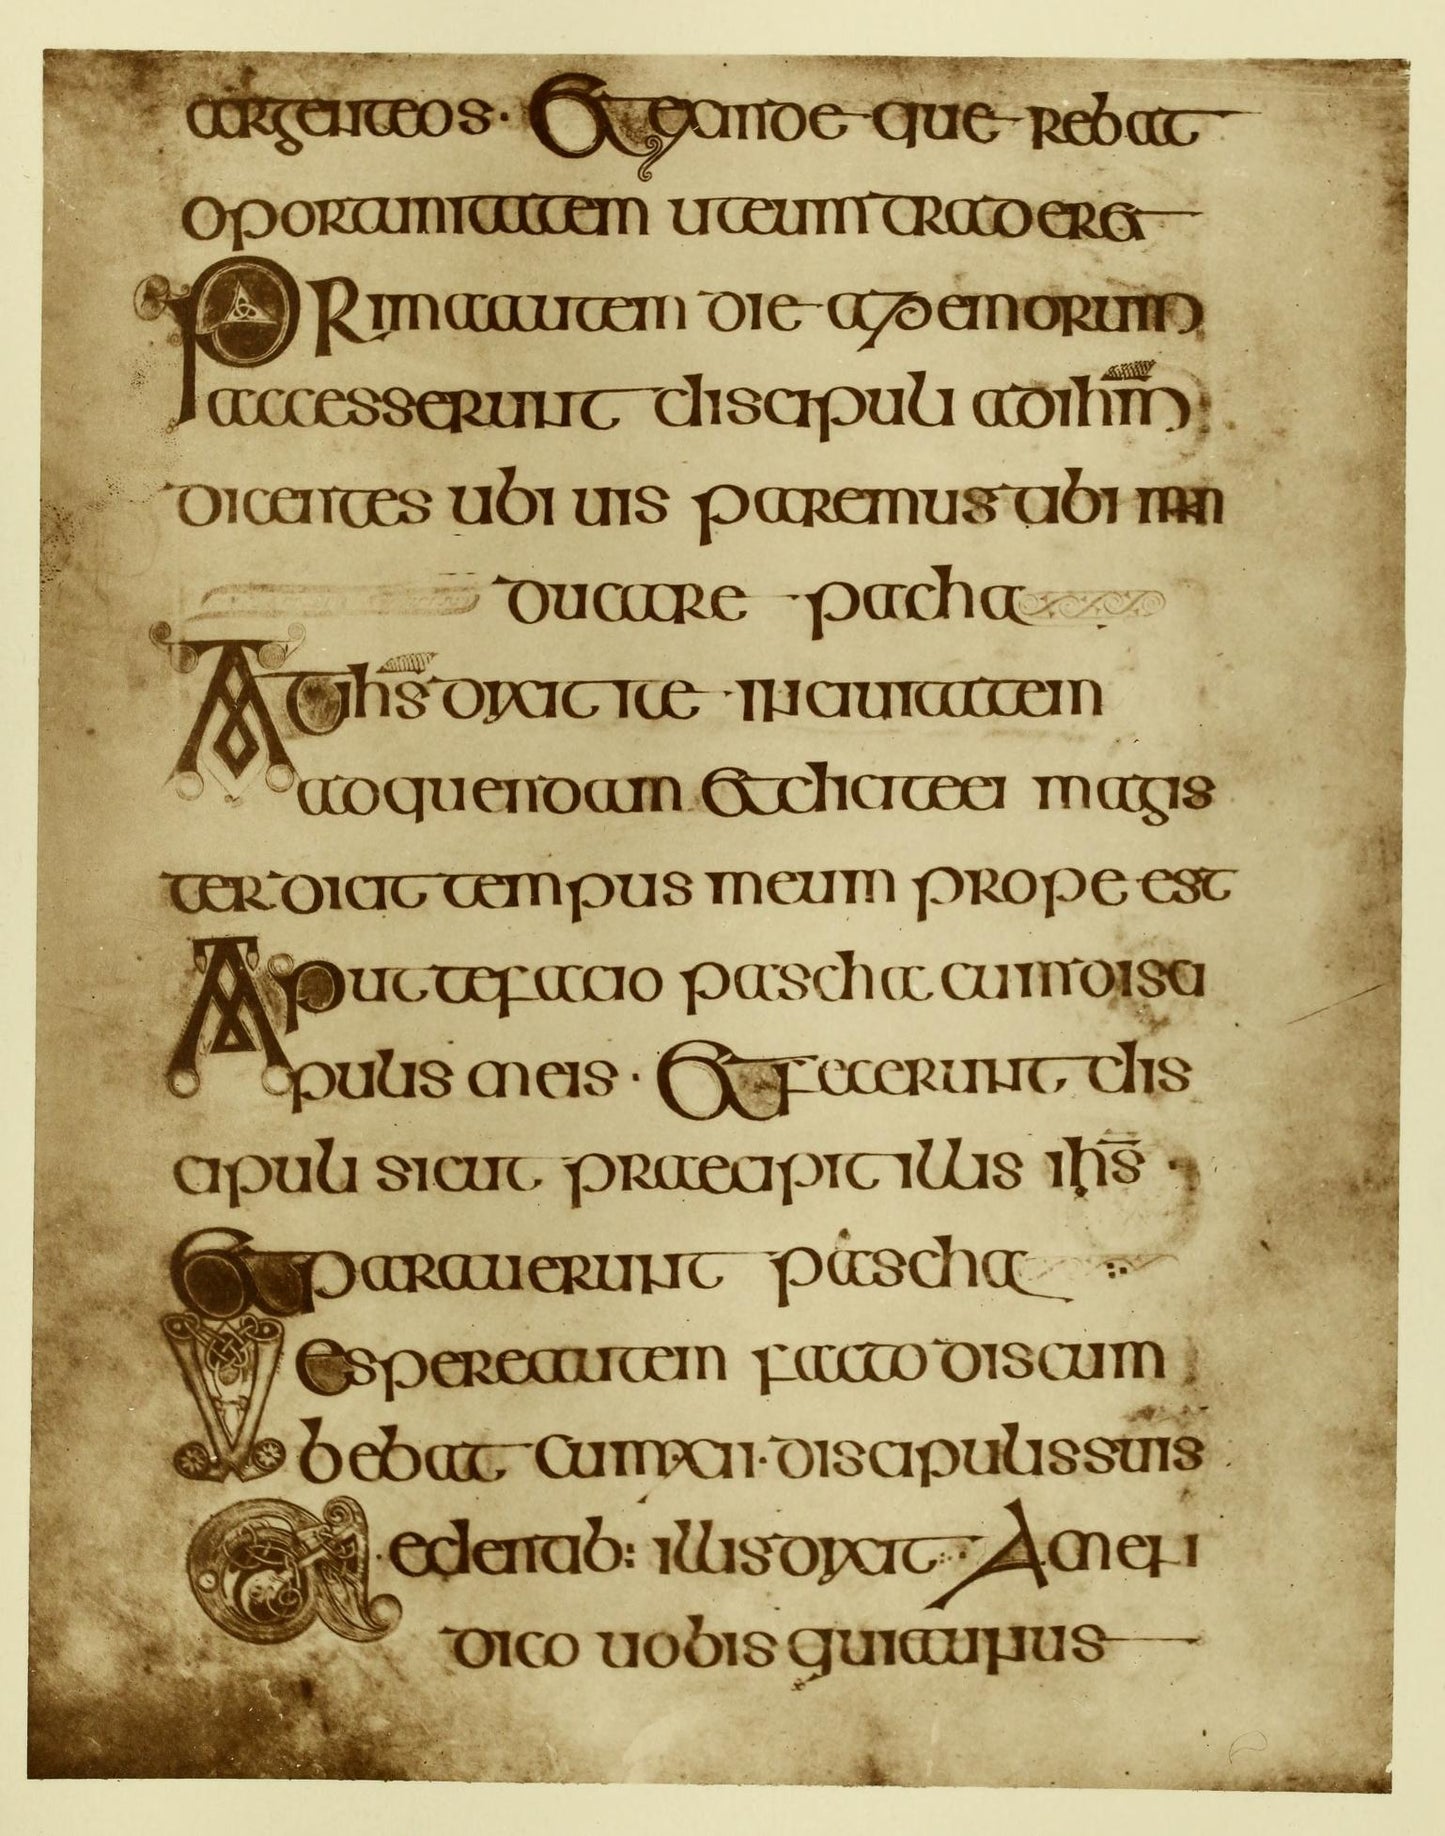 argenteos · Et exinde querebat
oportunitatem uteum traderet
Prima autem die azemorum
accesserunt discipuli adihm̄
dicentes ubi uis paremus tibi mān
ducare pacha
At ihs̄ dixit ite in ciuitatem
adquendam et diciteei magis
ter dicit tempus meum prope est
Aput te facio pascha cum disci
pulis meis · Et fecerunt dis
cipuli sicut praecipit illis ihs̄ ·
Et parauerunt pascha
Vespere autem facto discum
bebat cum · xii · discipulis suis
Et edentib: illis dixit · Amen
dico uobis quia unus